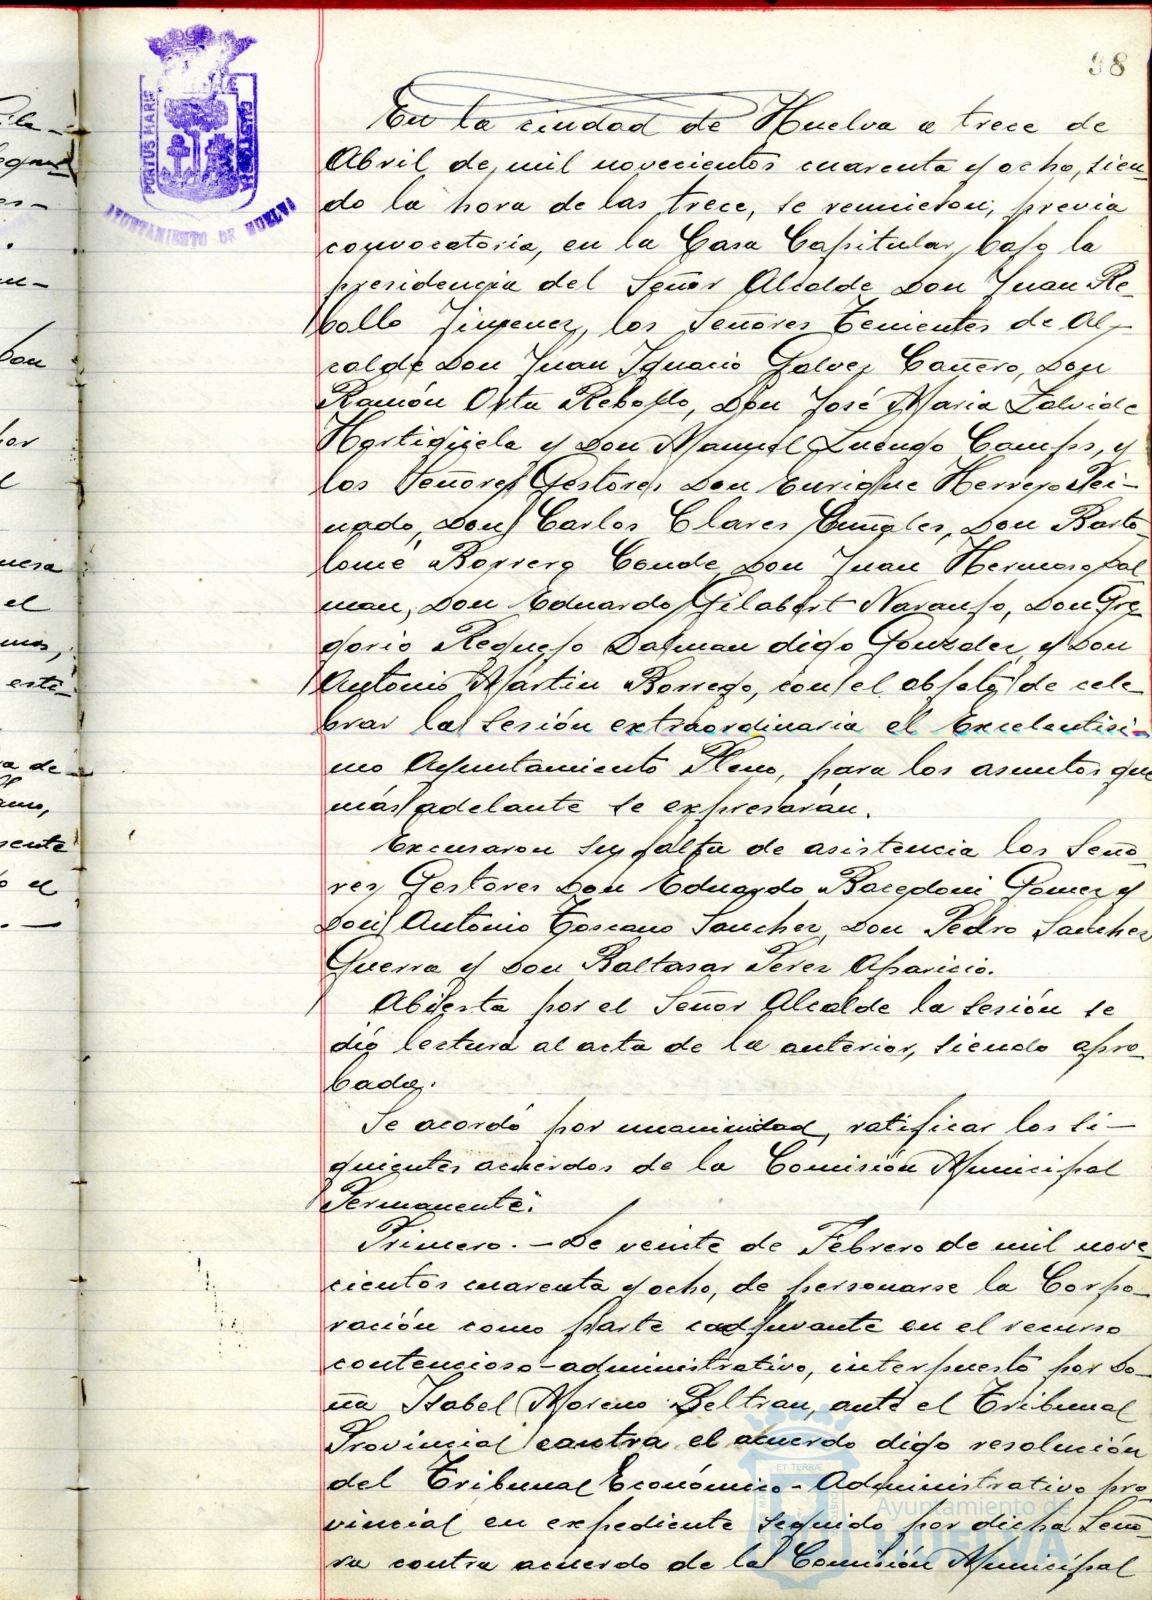 38
PORTUS MARIS
AYUNTAMIENTO DE HUELVA
En la ciudad de Huelva a trece de
Abril de mil novecientos cuarenta y ocho, sien-
do la hora de las trece, se reunieron, previa
convocatoria, en la Casa Capitular, bajo la
presidencia del Señor Alcalde Don Juan Re-
bollo Jimenez, los Señores Tenientes de Al-
calde Don Juan Ignacio Galvez Cañero, Don
Ramón Orta Rebollo, Don José Maria Zalvide
Hortigüela y Don Manuel Luengo Camps, y
los Señores Gestores Don Enrique Herrero Pei-
nado, Don Carlos Clares Don Barto-
lomé Borrero Conde, Don Juan Hermoso Dal
man, Don Eduardo Gilabert Naranjo, Don Gre
gorio Requejo Dalman digo Gonzalez, y Don
Antonio Martin Borrego, con el objeto de cele
brar la sesión extraordinaria el Excelentisi-
mo Ayuntamiento Pleno, para los asuntos que
más adelante se expresarán.
Excusaron su falta de asistencia los Seño-
res Gestores Don Eduardo Gomez y
Don Antonio Toscano Sanchez, Don Pedro Sanchez
Guerra y Don Baltasar Perez Aparicio.
Abierta por el Señor Alcalde la sesión se
dió lectura al acta de la anterior, siendo apro-
bada.
Se acordó por unanimidad, ratificar los si-
guientes acuerdos de la Comisión Municipal
Permanente:
Primero.- De veinte de Febrero de mil nove-
cientos cuarenta y ocho, de personarse la Corpo-
ración como parte coadjuvante en el recurso
contencioso-administrativo, interpuesto por Do-
ña Isabel Moreno Beltran, ante el Tribunal
Provincial contra el acuerdo digo resolución
del Tribunal Económico-Administrativo pro-
vincial en expediente seguido por dicha Seño-
ra contra acuerdo de la Comisión Municipal
Ayuntamiento de
HUELVA